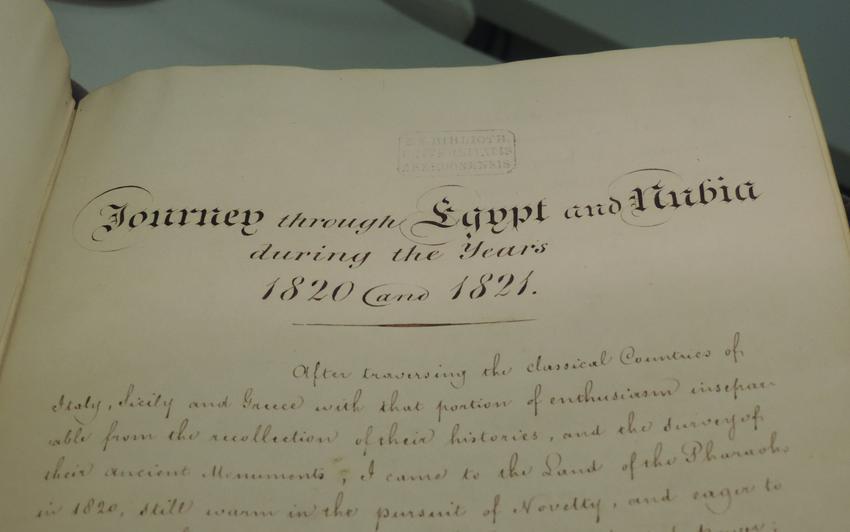 BIBLIOTH.
UNIVERSITATIS
ABERDONENSIS
Journey through Egypt and Nubia
during the Years
1820 and 1821.
After traversing the classical Countries of
Italy, Sicily and Greece with that portion of enthusiasm insepar
able from the recollection of their histories, and the survey of
their ancient Monuments, I came to the Land of the Pharaohs
in 1820, still warm in the pursuit of Novelty, and eager to